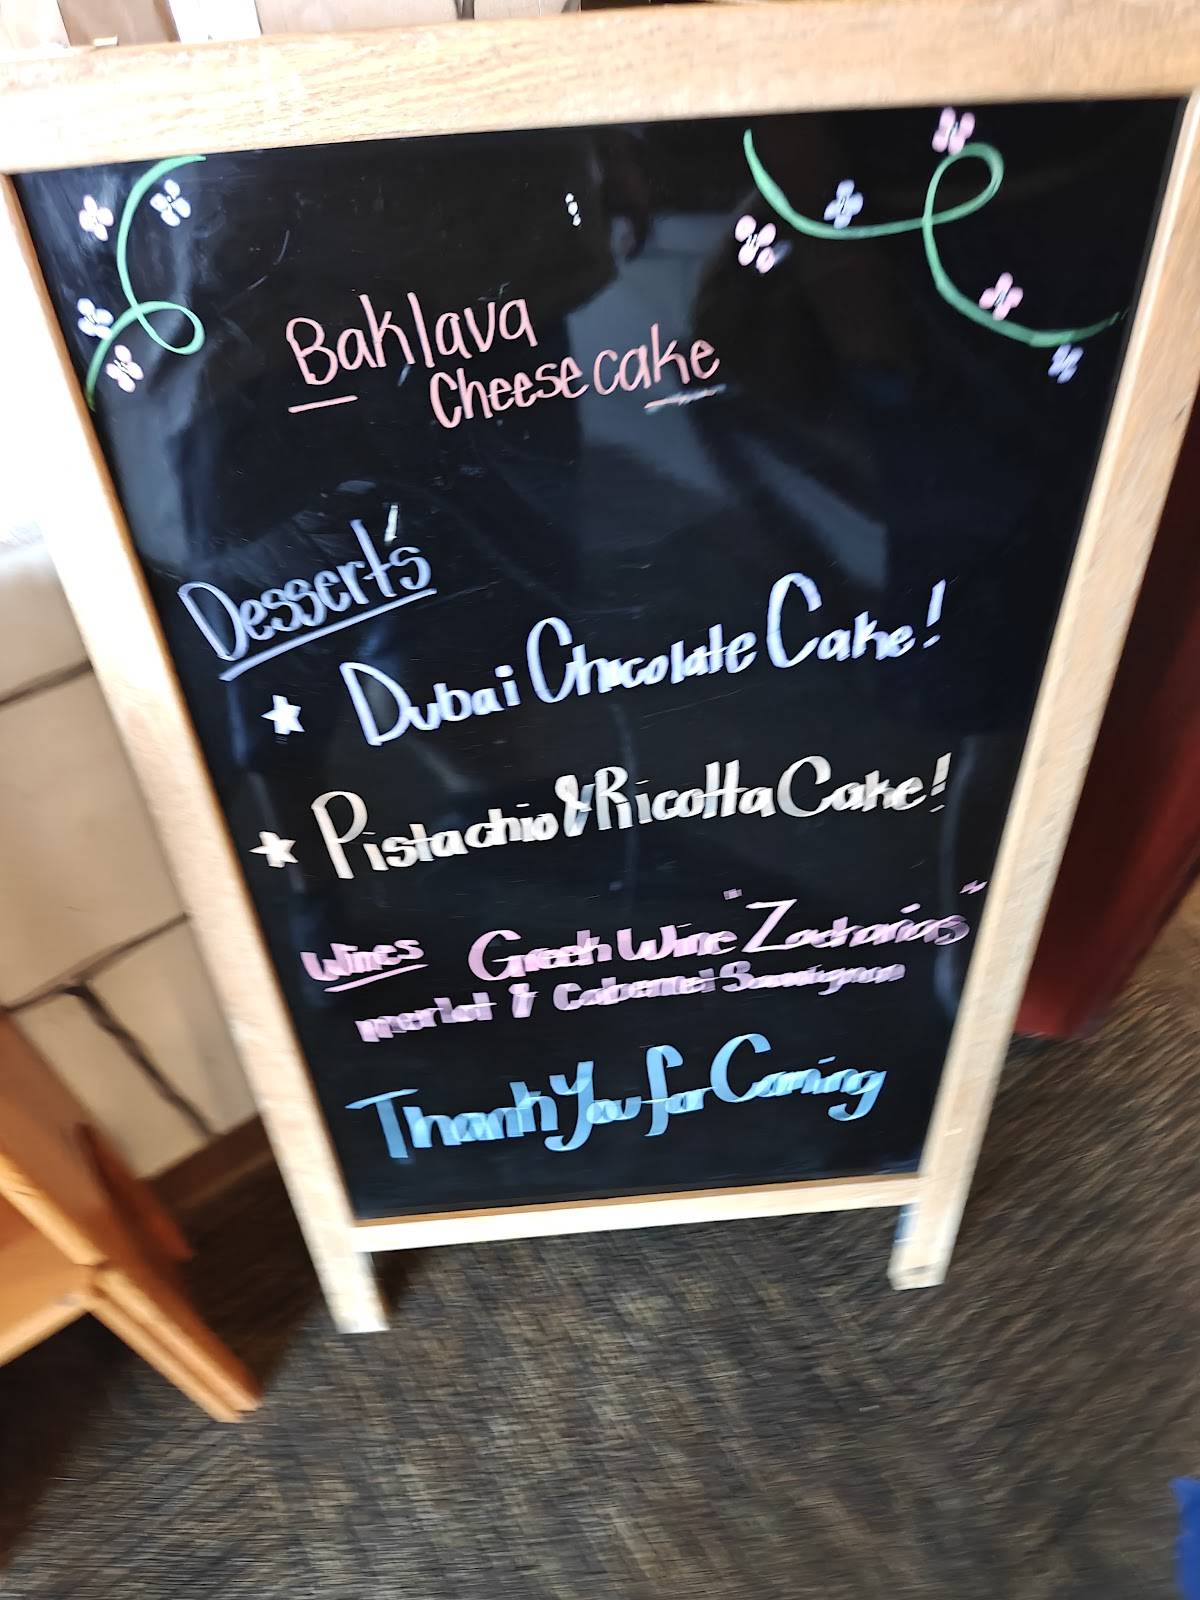 Baklava
Cheesecake
Dessert's
★ Dubai Chocolate Cake!
★ Pistachio & Ricotta Cake!
Wines Greek Wine "Zacharias"
merlot & Cabernet Sauvignon
Thank You for Coming